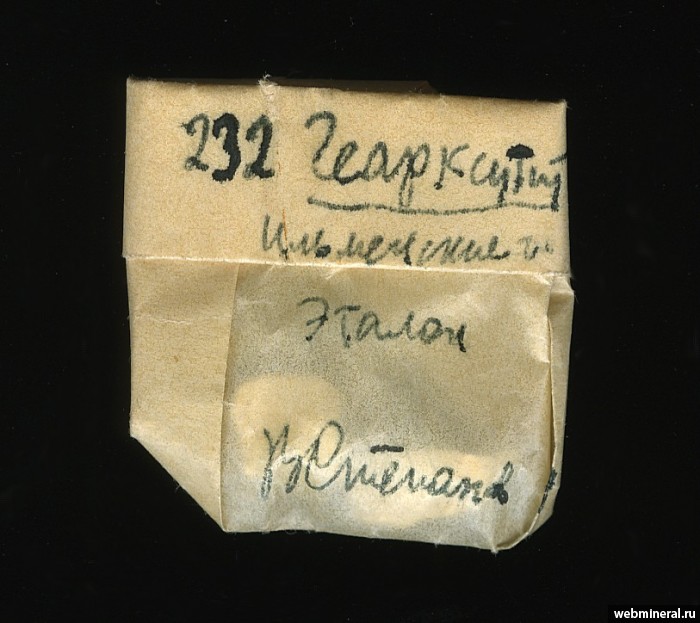 232 Геарксутит
Ильменские г.
Эталон
В Степанов
webmineral.ru